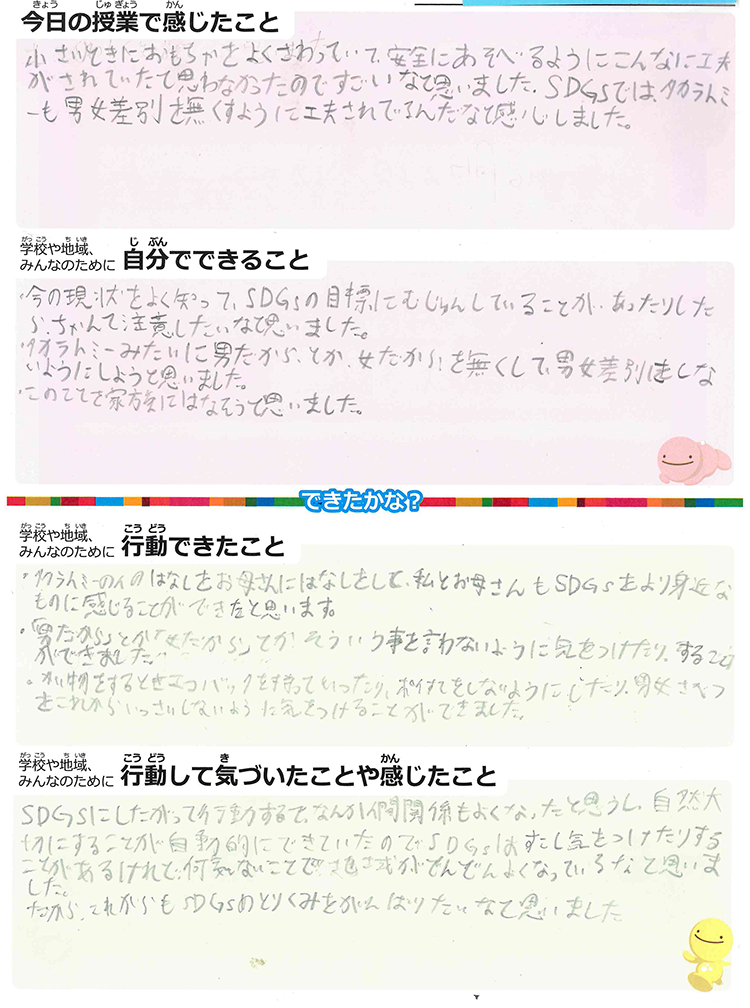 きょう じゅぎょう かん
今日の授業で感じたこと
小さいときにおもちゃをよくさわっていて、安全にあそべるようにこんなに工夫
がされていたと思わなかったのですごいなと思いました。SDGsでは、タカラトミ
ーも男女差別を無くすように工夫されてるんだなと感じしました。
がっこう ちいき じぶん
学校や地域、
みんなのために 自分でできること
・今の現状をよく知って、SDGsの目標にむじゅんしていることが、あったりした
ら、ちゃんと注意したいなと思いました。
・タカラトミーみたいに男だから、とか、女だから!を無くして、男女差別はしな
いようにしようと思いました。
・このことで家族にはなそうと思いました。
できたかな?
がっこう ちいき こうどう
学校や地域、
みんなのために 行動できたこと
・タカラトミーの はなしをお母さんにはなしをして、私とお母さんもSDGsをより身近な
ものに感じることができたと思います。
・「男だから」とか「女だから」とか、そういう事を言わないように気をつけたり、すること
ができました。
・かい物をするときエコバックを持っていったり、ポイすてをしないようにしたり、男女さべつ
をこれからいっさいしないように気をつけることができました。
がっこう ちいき こうどう き かん
学校や地域、
みんなのために 行動して気づいたことや感じたこと
SDGsにしたがって行動するで、なんか 間関係もよくなったと思うし、自然大
切にすることが自動的にできていたのでSDGsはすこし気をつけたりする
ことがあるけれど、何気ないことで地域がどんどんよくなっているなと思いま
した。
だから、これからもSDGsのとりくみをがんばりたいなと思いました